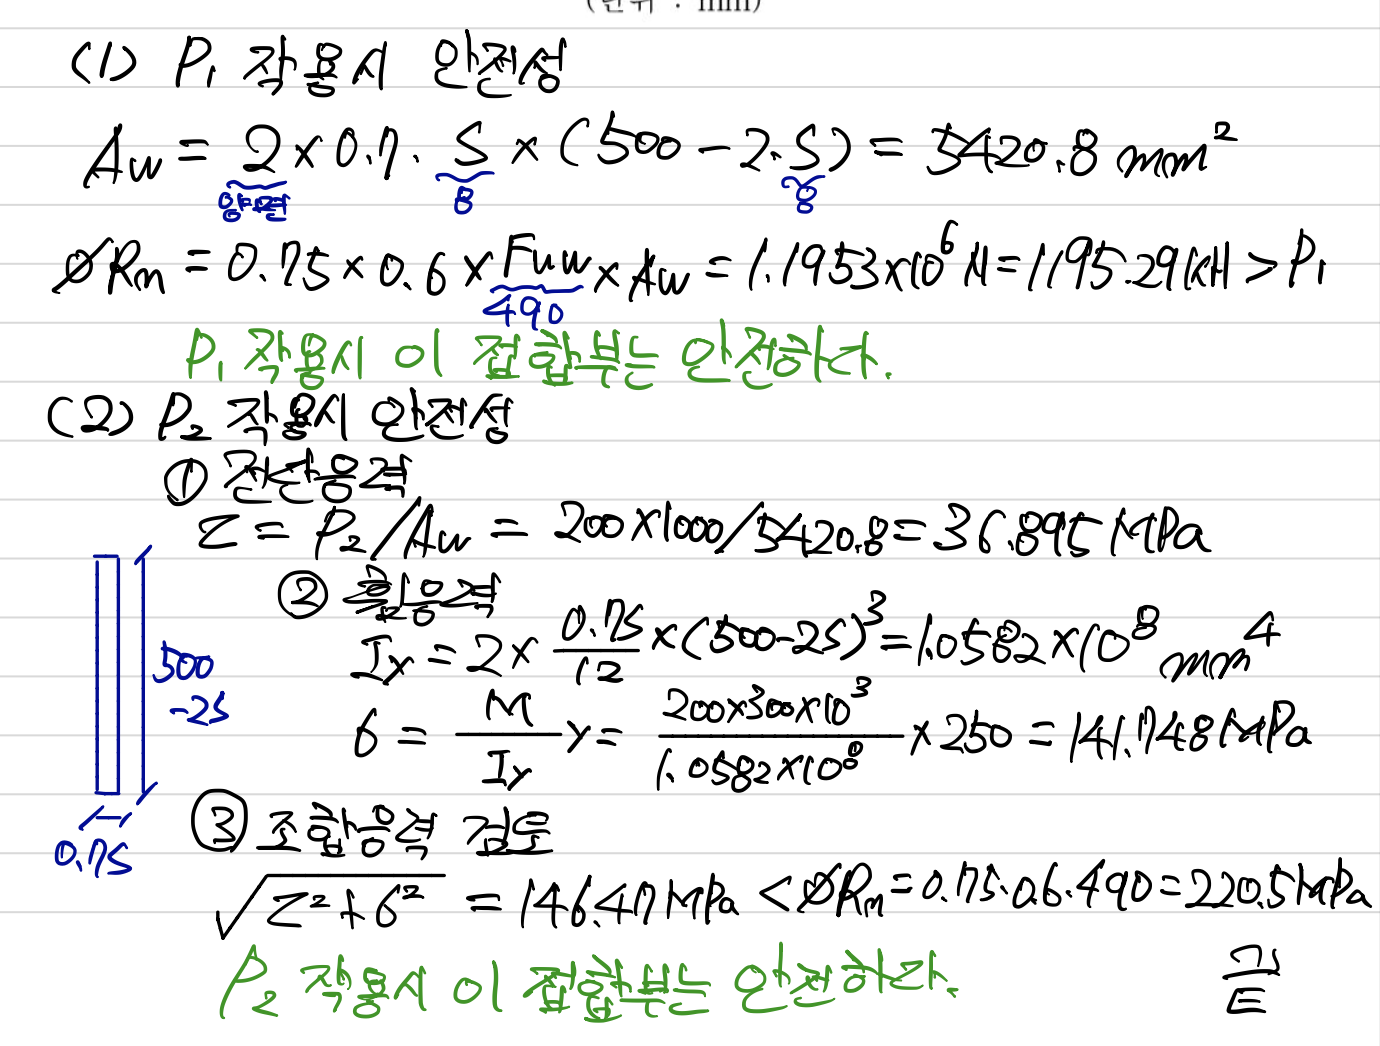 (단위 : mm)
(1) P₁ 작용시 안전성
Aw = 2 × 0.7 · S × (500 - 2·S) = 5420.8 mm²
양면 8 8
ØRn = 0.75 × 0.6 × Fuw × Aw = 1.1953×10⁶ N = 1195.29 kN > P₁
490
P₁ 작용시 이 접합부는 안전하다.
(2) P₂ 작용시 안전성
① 전단응력
τ = P₂/Aw = 200×1000/5420.8 = 36.895 MPa
② 휨응력
Ix = 2 × 0.7S/12 × (500-2S)³ = 1.0582×10⁸ mm⁴
500
-2S
σ = M/Iy y = 200×300×10³/1.0582×10⁸ × 250 = 141.748 MPa
③ 조합응력 검토
0.7S
√τ²+σ² = 146.47 MPa < ØRn = 0.75·0.6·490 = 220.5 MPa
P₂ 작용시 이 접합부는 안전하다.
끝